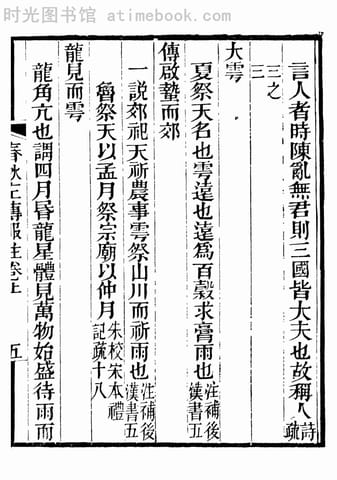 时光图书馆 atimebook.com
言人者時陳亂無君則三國皆大夫也故稱人詩疏
三之三
大雩
夏祭天名也雩遠也遠為百穀求膏雨也注補後漢書五
傳啟蟄而郊
一說郊祀天祈農事雩祭山川而祈雨也注補後漢書五
魯祭天以孟月祭宗廟以仲月朱校宋本禮記疏十八
龍見而雩
龍角亢也謂四月昏龍星體見萬物始盛待雨而
春秋左傳服注卷上 五